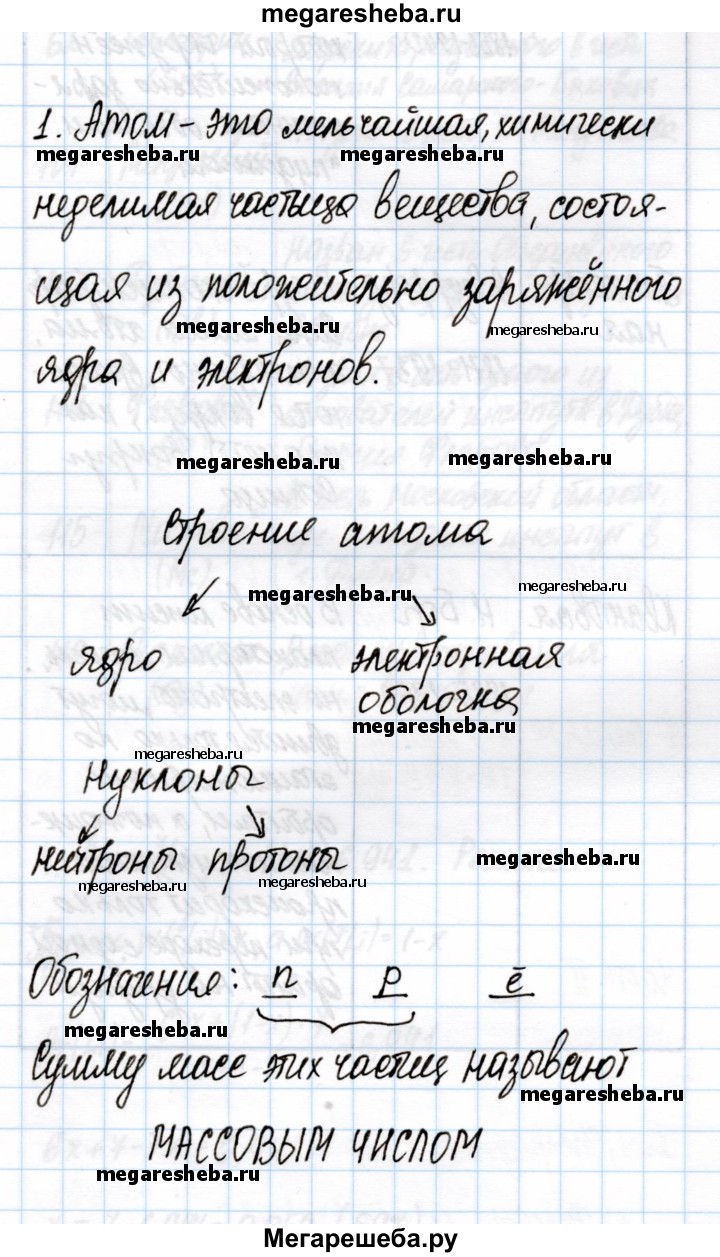 megaresheba.ru
1. Атом - это мельчайшая, химически
megaresheba.ru megaresheba.ru
неделимая частица вещества, состоя-
щая из положительно заряжённого
megaresheba.ru megaresheba.ru
ядра и электронов.
megaresheba.ru megaresheba.ru
Строение атома
megaresheba.ru megaresheba.ru
ядро электронная
оболочка
megaresheba.ru
megaresheba.ru
нуклоны
нейтроны протоны megaresheba.ru
megaresheba.ru megaresheba.ru
Обозначения: n p ē
megaresheba.ru
Сумму масс этих частиц называют
megaresheba.ru
МАССОВЫМ ЧИСЛОМ
megaresheba.ru
Мегарешеба.ру